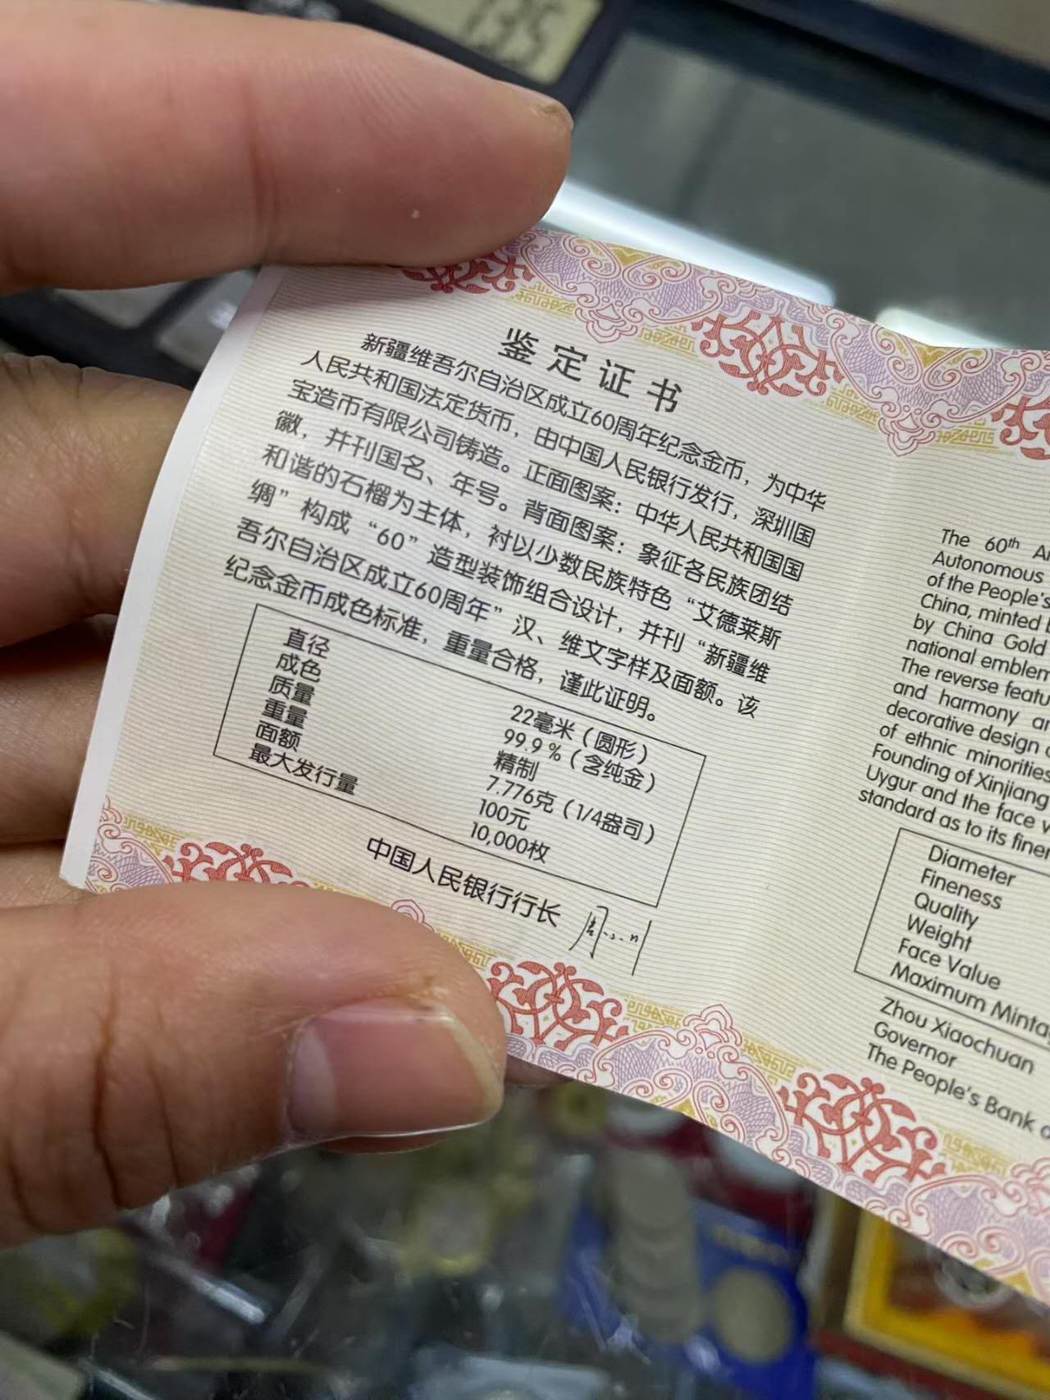 135
鉴定证书
新疆维吾尔自治区成立60周年纪念金币，为中华
人民共和国法定货币，由中国人民银行发行，深圳国
宝造币有限公司铸造。正面图案：中华人民共和国国
徽，并刊国名、年号。背面图案：象征各民族团结
和谐的石榴为主体，衬以少数民族特色“艾德莱斯
绸”构成“60”造型装饰组合设计，并刊“新疆维
吾尔自治区成立60周年”汉、维文字样及面额。该
纪念金币成色标准，重量合格，谨此证明。
直径 22毫米（圆形）
成色 99.9％（含纯金）
质量 精制
重量 7.776克（1/4盎司）
面额 100元
最大发行量 10,000枚
中国人民银行行长
The 60th
Autonomous
of the People's
China, minted
by China Gold
national emblem
The reverse
and harmony
decorative design
of ethnic minorities
Founding of Xinjiang
Uygur and the face
standard as to its
Diameter
Fineness
Quality
Weight
Face Value
Maximum
Zhou Xiaochuan
Governor
The People's Bank